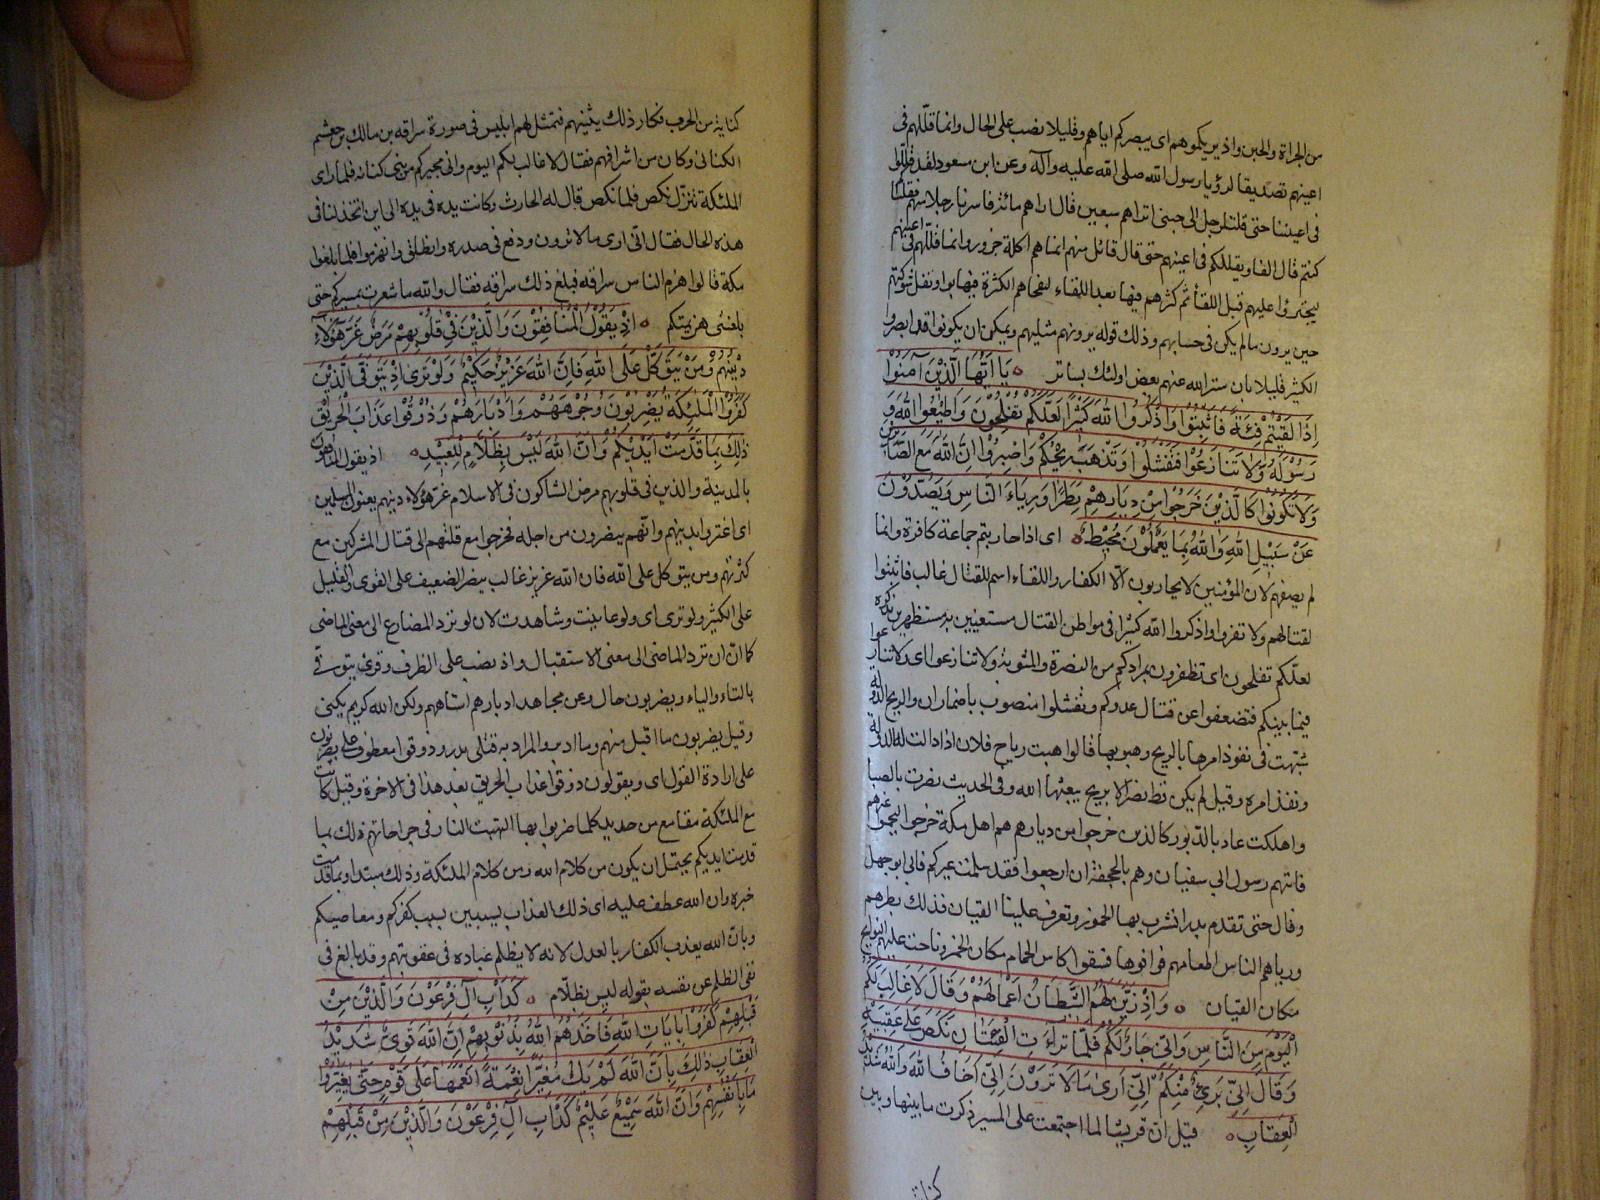 من الجراة والجبن واذ يريكموهم اى يبصركم اياهم وقليلا نصب على الحال وانما قللهم فى
اعينهم تصديقا لرؤيا رسول الله صلى الله عليه وآله وعن ابن مسعود لقد قللوا
فى اعيننا حتى قلت لرجل الى جنبى اتراهم سبعين قال اراهم مائة فاسرنا رجلا منهم فقلنا
كنتم قال الفا ويقللكم فى اعينهم حتى قال قائل منهم انما هم اكلة جزور وانما قللهم فى اعينهم
ليجترؤا عليهم قبل اللقاء ثم كثرهم فيها بعد اللقاء لتفجاهم الكثرة فيهابوا وتفل شوكتهم
حين يرون ما لم يكن فى حسابهم وذلك قوله يرونهم مثليهم ويمكن ان يكونوا قد ابصروا
الكثير قليلا بان ستر الله عنهم بعض اولئك بساتر يَا اَيُّهَا الَّذِيْنَ آمَنُوا
اِذَا لَقِيْتُمْ فِئَةً فَاثْبُتُوْا وَاذْكُرُوا اللهَ كَثِيْرًا لَعَلَّكُمْ تُفْلِحُوْنَ وَاَطِيْعُوا اللهَ وَ
رَسُوْلَهُ وَلَا تَنَازَعُوْا فَتَفْشَلُوْا وَتَذْهَبَ رِيْحُكُمْ وَاصْبِرُوْا اِنَّ اللهَ مَعَ الصَّابِرِيْنَ
وَلَا تَكُوْنُوْا كَالَّذِيْنَ خَرَجُوْا مِنْ دِيَارِهِمْ بَطَرًا وَرِيَاءَ النَّاسِ وَيَصُدُّوْنَ
عَنْ سَبِيْلِ اللهِ وَاللهُ بِمَا يَعْمَلُوْنَ مُحِيْطٌ اى اذا حاربتم جماعة كافرة وانما
لم يصفهم لان المؤمنين لا يحاربون الا الكفار واللقاء اسم للقتال غالب فاثبتوا
لقتالهم ولا تفروا واذكروا الله كثيرا فى مواطن القتال مستعينين به مستظهرين بذكره
لعلكم تفلحون اى تظفرون بمرادكم من النصرة والمثوبة ولا تنازعوا اى لا تنازعوا
فيما بينكم فتضعفوا عن قتال عدوكم وتفشلوا منصوب باضمار ان والريح الدولة
شبهت فى نفوذ امرها بالريح وهبوبها فقالوا هبت رياح فلان اذا دالت له الدولة
ونفذ امره وقيل لم يكن قط نصر الا بريح يبعثها الله وفى الحديث نصرت بالصبا
واهلكت عاد بالدبور كالذين خرجوا من ديارهم هم اهل مكة خرجوا ليحموا عيرهم
فاتهم رسول ابى سفيان وهم بالجحفة ان ارجعوا فقد سلمت عيركم فابى ابو جهل
وقال حتى نقدم بدرا نشرب بها الخمور وتعزف علينا القيان فذلك بطرهم
ورياهم الناس اطعامهم فوافوها فسقوا كاس الحمام مكان الخمر وناحت عليهم النوايح
مكان القيان وَاِذْ زَيَّنَ لَهُمُ الشَّيْطَانُ اَعْمَالَهُمْ وَقَالَ لَا غَالِبَ لَكُمُ
الْيَوْمَ مِنَ النَّاسِ وَاِنِّي جَارٌ لَكُمْ فَلَمَّا تَرَاءَتِ الْفِئَتَانِ نَكَصَ عَلَى عَقِبَيْهِ
وَقَالَ اِنِّي بَرِيْءٌ مِنْكُمْ اِنِّي اَرَى مَا لَا تَرَوْنَ اِنِّي اَخَافُ اللهَ وَاللهُ شَدِيْدُ
الْعِقَابِ قيل ان قريشا لما اجتمعت على المسير ذكرت ما بينها وبين
كنانة
كنانة من الحرب فكاد ذلك يثنيهم فتمثل لهم ابليس فى صورة سراقه بن مالك بن جعشم
الكنانى وكان من اشرافهم فقال لا غالب لكم اليوم وانى مجيركم من بنى كنانه فلما راى
الملئكة تنزل نكص فلما نكص قال له الحارث وكانت يده فى يده الى اين اتخذلنا فى
هذه الحال فقال انى ارى ما لا ترون ودفع فى صدره وانطلق وانهزموا فلما بلغوا
مكة قالوا هزم الناس سراقه فبلغ ذلك سراقه فقال والله ما شعرت بمسيركم حتى
بلغتنى هزيمتكم اِذْ يَقُوْلُ الْمُنَافِقُوْنَ وَالَّذِيْنَ فِيْ قُلُوْبِهِمْ مَرَضٌ غَرَّ هٰؤُلَاءِ
دِيْنُهُمْ وَمَنْ يَتَوَكَّلْ عَلَى اللهِ فَاِنَّ اللهَ عَزِيْزٌ حَكِيْمٌ وَلَوْ تَرَى اِذْ يَتَوَفَّى الَّذِيْنَ
كَفَرُوا الْمَلٰئِكَةُ يَضْرِبُوْنَ وُجُوْهَهُمْ وَاَدْبَارَهُمْ وَذُوْقُوْا عَذَابَ الْحَرِيْقِ
ذٰلِكَ بِمَا قَدَّمَتْ اَيْدِيْكُمْ وَاَنَّ اللهَ لَيْسَ بِظَلَّامٍ لِلْعَبِيْدِ اذ يقول المنافقون
بالمدينة والذين فى قلوبهم مرض الشاكون فى الاسلام غر هؤلاء دينهم يعنون المسلمين
اى اغتروا بدينهم وانهم ينصرون من اجله فخرجوا مع قلتهم الى قتال المشركين مع
كثرتهم ومن يتوكل على الله فان الله عزيز غالب ينصر الضعيف على القوى والقليل
على الكثير ولو ترى اى ولو عاينت وشاهدت لان لو ترد المضارع الى معنى الماضى
كما ان ان ترد الماضى الى معنى الاستقبال واذ نصب على الظرف وقرئ يتوفى
بالتاء والياء ويضربون حال وعن مجاهد ادبارهم استاههم ولكن الله كريم يكنى
وقيل يضربون ما اقبل منهم وما ادبر والمراد به قتلى بدر وذوقوا معطوف على يضربون
على ارادة القول اى ويقولون ذوقوا عذاب الحريق بعد هذا فى الاخرة وقيل كانت
مع الملئكة مقامع من حديد كلما ضربوا بها التهبت النار فى جراحاتهم ذلك بما
قدمت ايديكم يحتمل ان يكون من كلام الله ومن كلام الملئكة وذلك مبتدا وبما قدمت
خبره وان الله عطف عليه اى ذلك العذاب بسببين بسبب كفركم ومعاصيكم
وبان الله يعذب الكفار بالعدل لانه لا يظلم عباده فى عقوبتهم وقد بالغ فى
نفى الظلم عن نفسه بقوله ليس بظلام كَدَاْبِ آلِ فِرْعَوْنَ وَالَّذِيْنَ مِنْ
قَبْلِهِمْ كَفَرُوْا بِاٰيَاتِ اللهِ فَاَخَذَهُمُ اللهُ بِذُنُوْبِهِمْ اِنَّ اللهَ قَوِيٌّ شَدِيْدُ
الْعِقَابِ ذٰلِكَ بِاَنَّ اللهَ لَمْ يَكُ مُغَيِّرًا نِعْمَةً اَنْعَمَهَا عَلَى قَوْمٍ حَتَّى يُغَيِّرُوْا
مَا بِاَنْفُسِهِمْ وَاَنَّ اللهَ سَمِيْعٌ عَلِيْمٌ كَدَاْبِ آلِ فِرْعَوْنَ وَالَّذِيْنَ مِنْ قَبْلِهِمْ